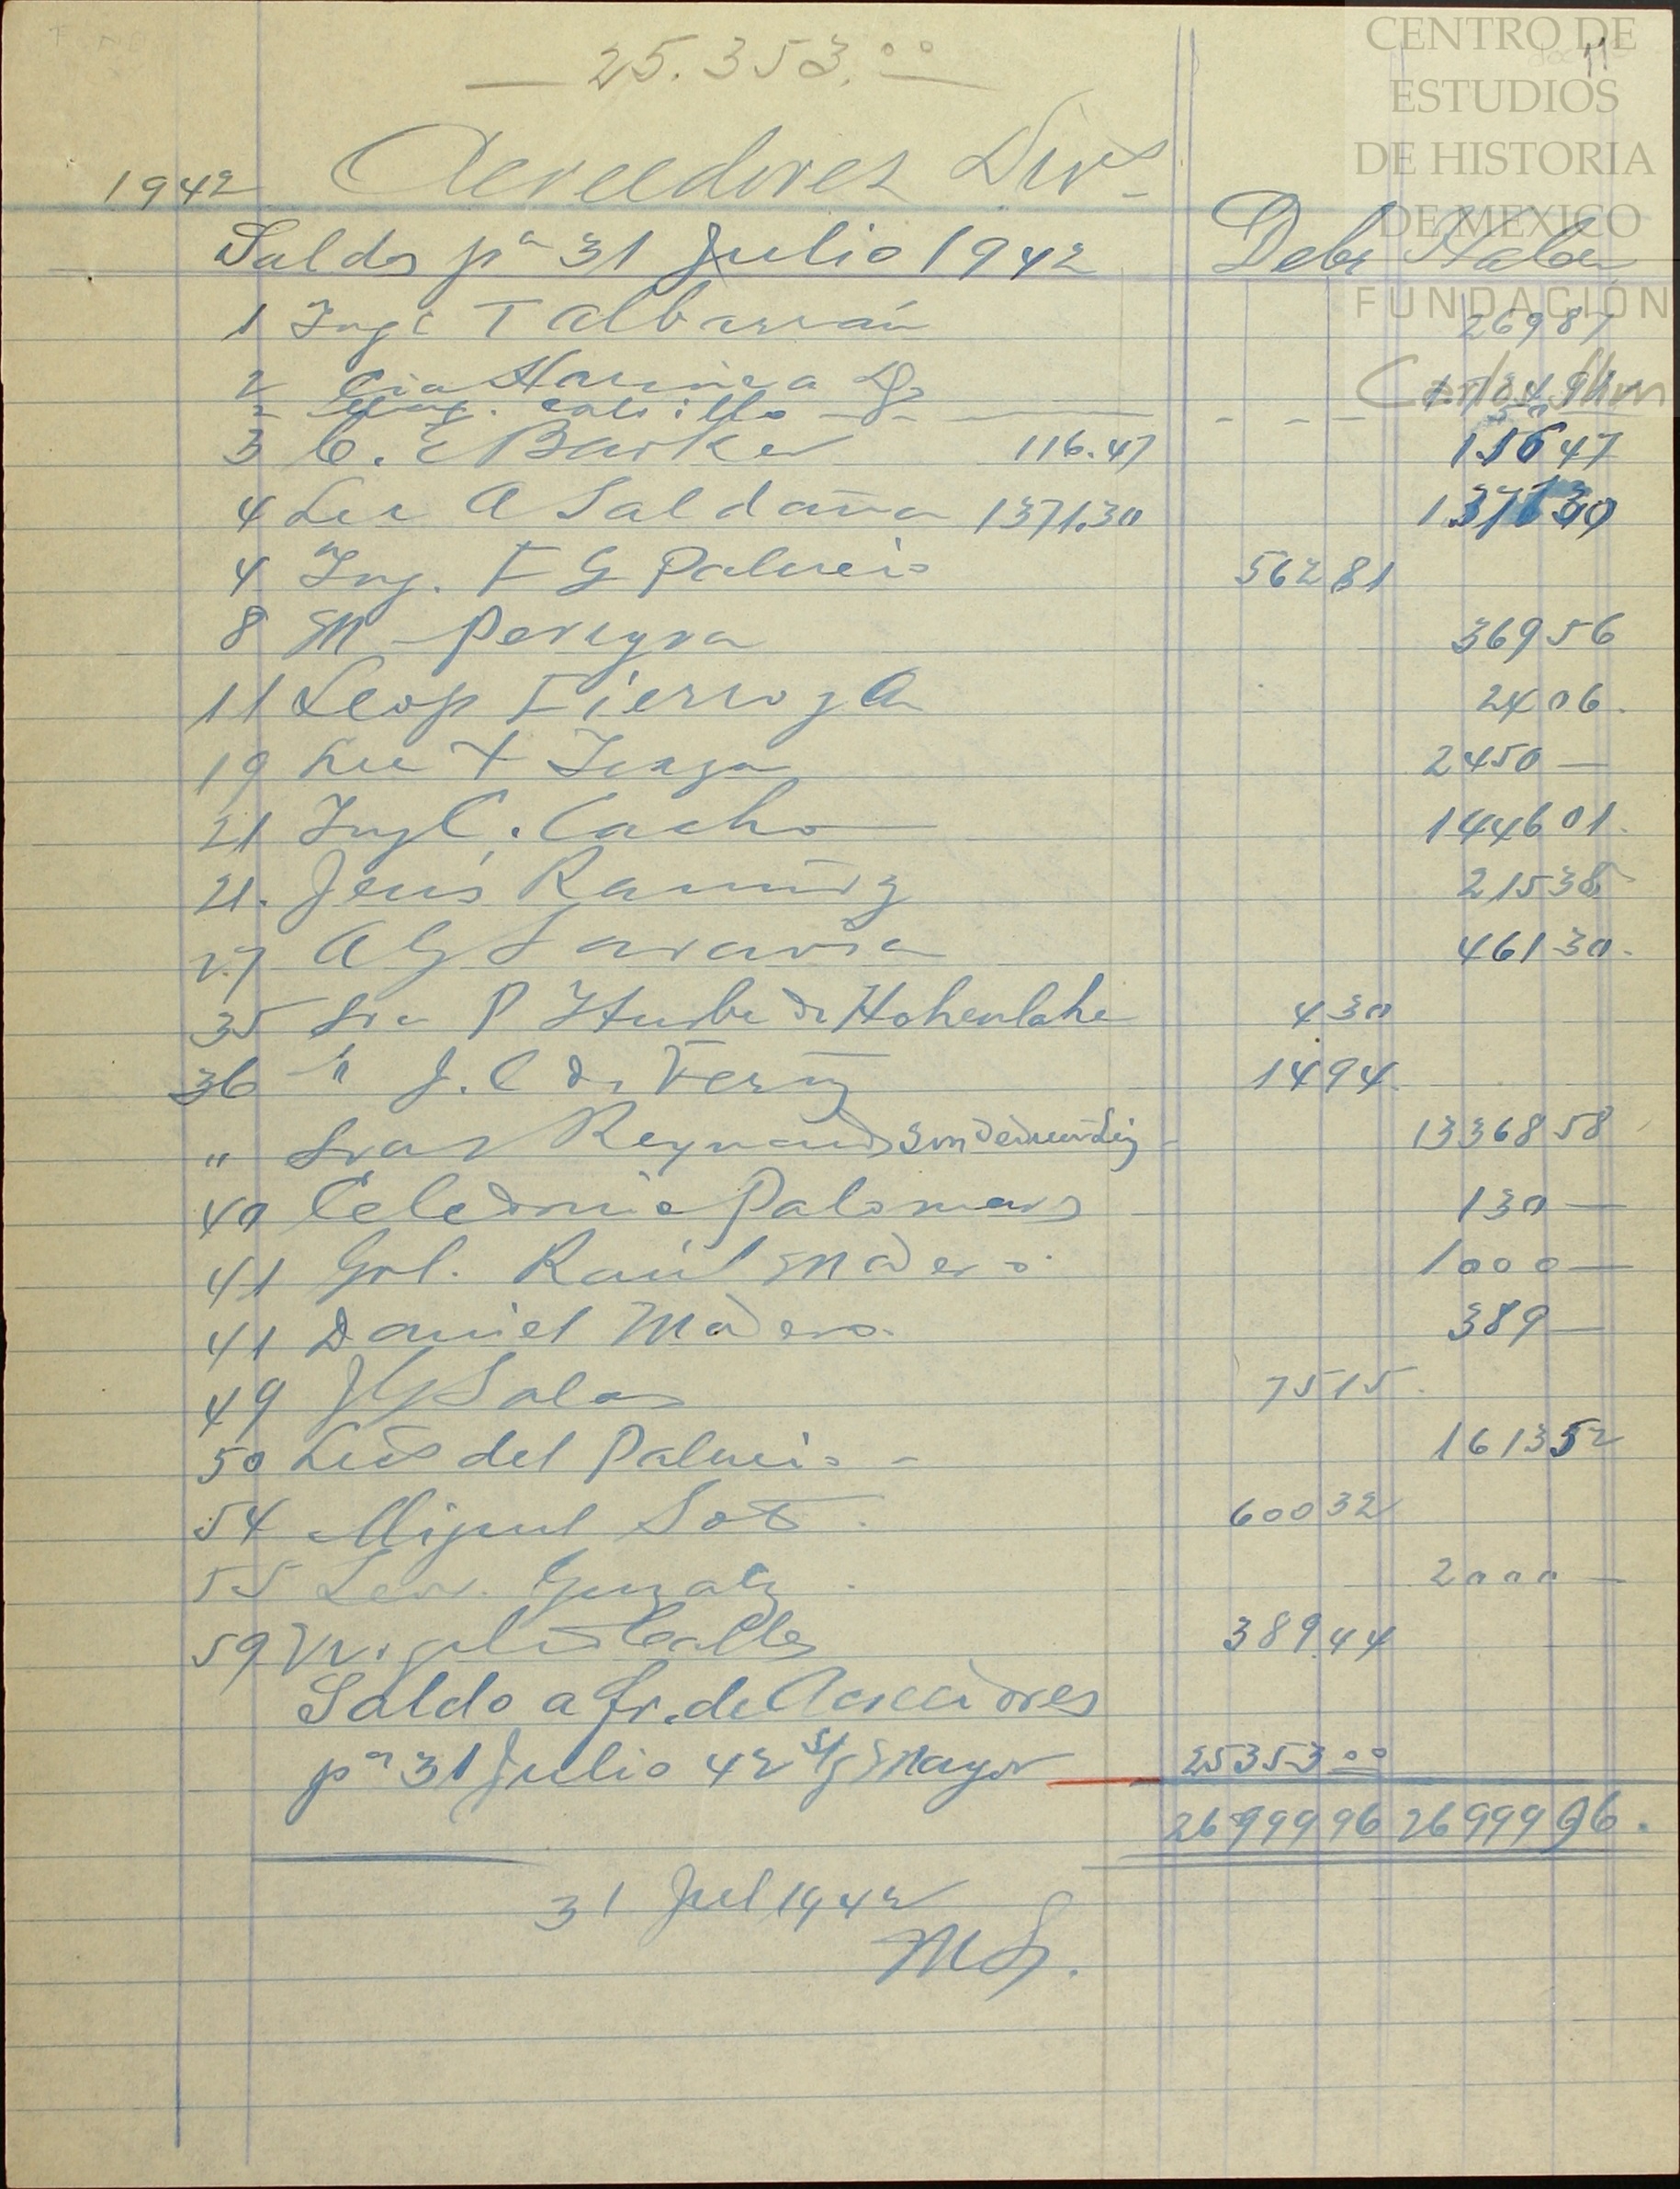 25.353.00
11
CENTRO DE
ESTUDIOS
DE HISTORIA
DE MEXICO
FUNDACIÓN
Carlos Slim
1942 Acreedores Divs
Saldos pa 31 Julio 1942 Debe Haber
1 Ing T Albarrán 26987
2 Cia Harinera
3 C. E Barker 116.47 11647
4 Lic A Saldaña 1371.30 137130
4 Ing. F G Palacio 56281
8 M Pereyra 36956
11 Leop Fierro z A 2406.
19 2450 —
21 Ing C. Cacho 144601.
21. Jesús Ramírez 21538
27 A G Saravia 46130.
35 Sra P Iturbe de Hohenlohe 430
36 " J. C de Veraz 1494.
" Sras Reynaud 1336858
40 Celedonio Palomares 130 —
41 Gral. Raúl Madero. 1000 —
41 Daniel Madero. 389 —
49 J G Salas 7515.
50 Luis del Palacio - 161352
54 Miguel Soto. 60032
55 Leov. Gonzalez . 2000 —
59 Calles 389.44
Saldo a fr. de Acreedores
pa 31 Julio 42 s/g Mayor 2535300
2699996 2699996.
31 Jul 1942